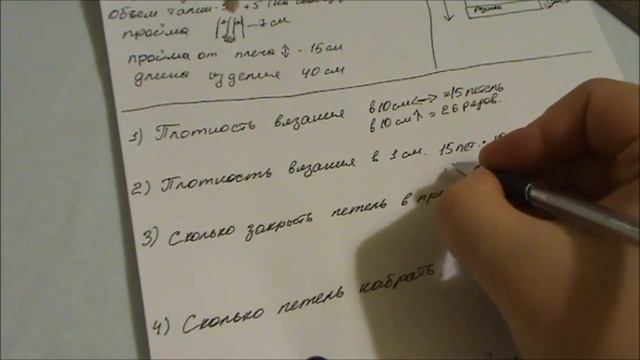 Объем талии
пройма -7см
пройма от плеча ↕ - 15см
длина изделия 40см
1) Плотность вязания в 10см ↔ = 15 петель
в 10см ↑ = 26 рядов.
2) Плотность вязания в 1см. 15пет.:
3) Сколько закрыть петель в
4) Сколько петель набрать.